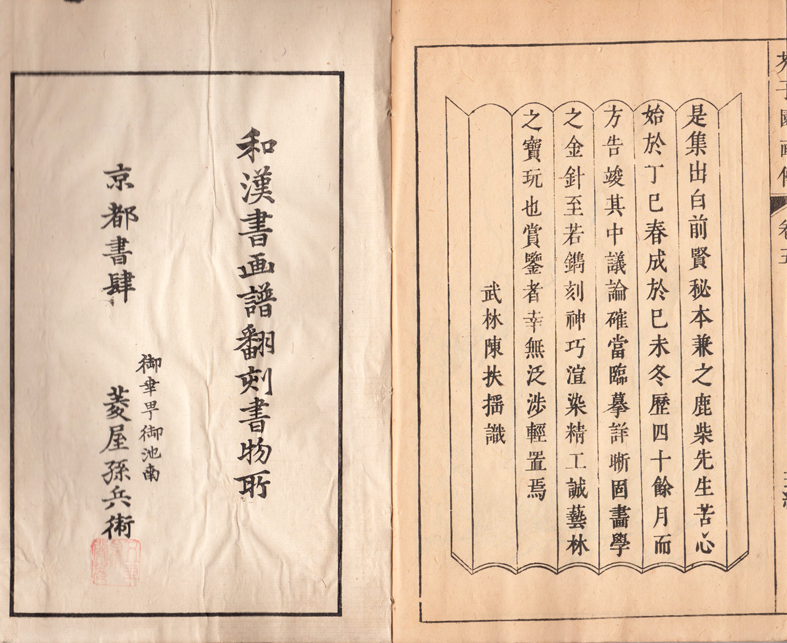 芥子園畫傳 卷五
是集出白前賢秘本兼之鹿柴先生苦心
始於丁巳春成於巳未冬歷四十餘月而
方告竣其中議論確當臨摹詳晰固畵學
之金針至若鐫刻神巧渲染精工誠藝林
之寶玩也賞鑒者幸無泛涉輕置焉
武林陳扶搖識
和漢書画譜翻刻書物所
京都書肆
御幸町御池南
菱屋孫兵衛